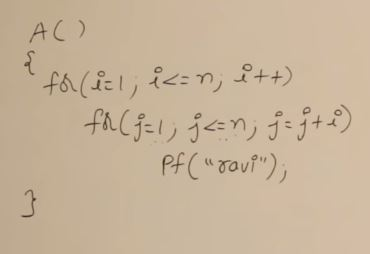 A()
{
for(i=1; i<=n; i++)
for(j=1; j<=n; j=j+i)
Pf("ravi");
}